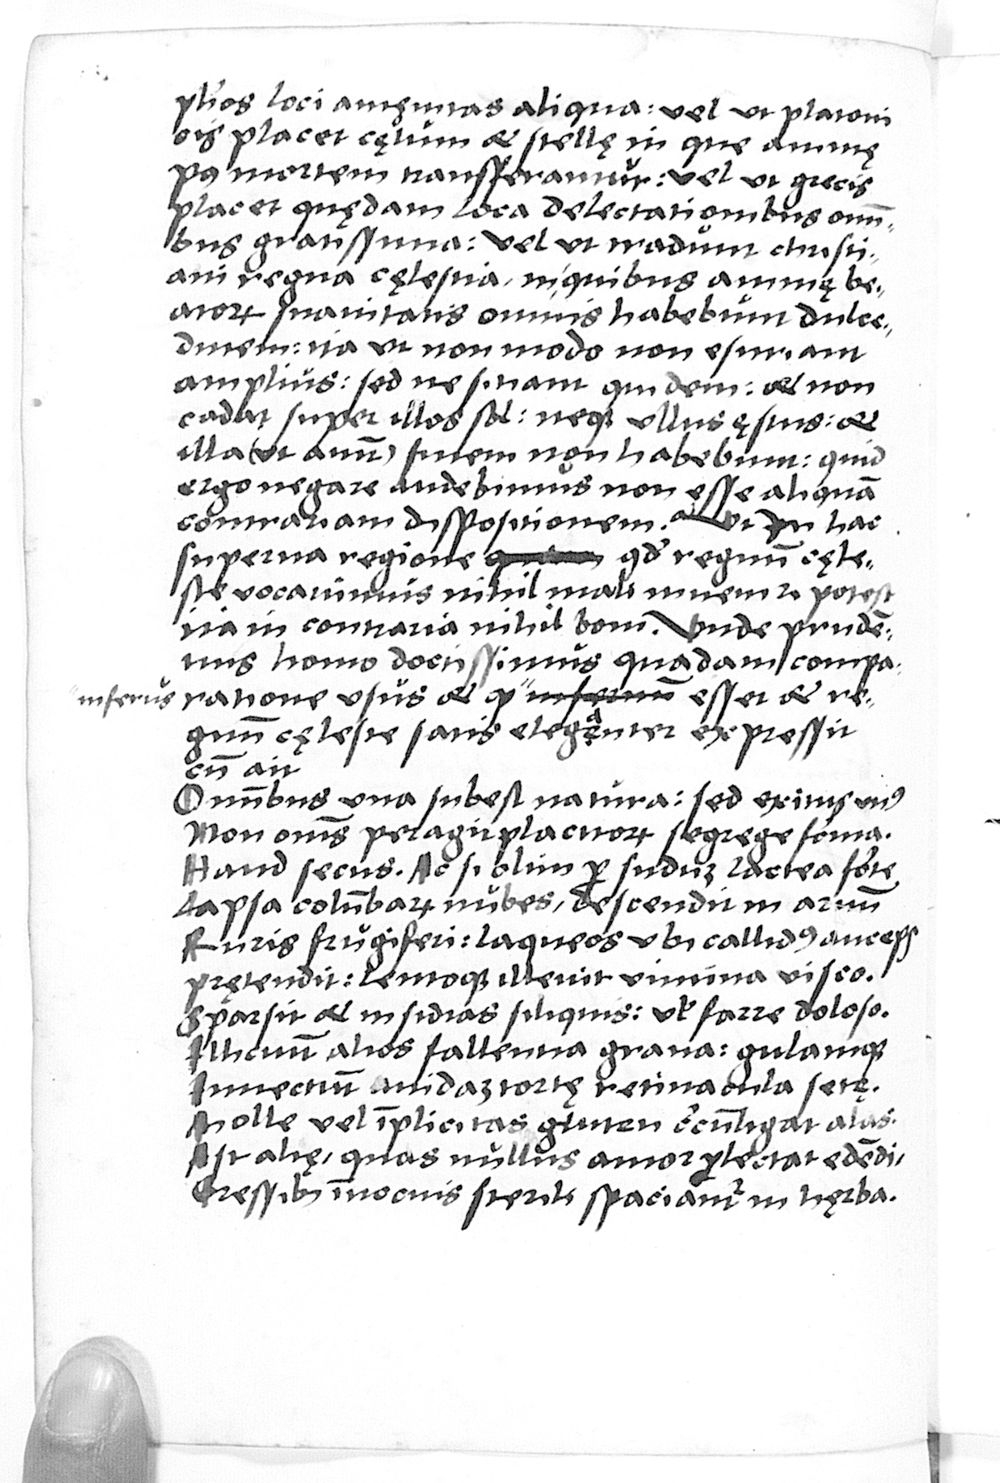 ph̃os loci amęnitas aliqua: vel vt platoni
cis placet cęlum & stellę in que animę
pꝰ mortem transferantur: vel vt grecis
placet quędam loca delectationibus omni-
bus gratissima: Vel vt tradunt christi-
ani regna cęlestia, in quibus animę be-
atorꝝ suauitatis omnis habebunt dulce-
dinem: ita vt non modo non esuriant
amplius: sed ne sitiant quidem: & non
cadat super illos sol: neqꝫ vllus ęstus: &
illa (vt aiũt) finem non habebunt: quid
ergo negare audebimus non esse aliquã
contrariam dispositionem. Vt in hac
superna regione qd̃ regnũ cęle-
ste vocauimus nihil mali inueniri potest
ita in contraria nihil boni. Vnde prudẽ-
tius homo doctissimus quadam compa-
inferus ratione vsus & qͥ infernũ esset & re-
gnũ cęleste satis elegãnter expressit
cũ ait
Omnĩbus vna subest natura: sed exitus vnꝰ
Non omẽs peragit placitorꝝ segrege fõma.
Haud secus. Ac si olim ꝑ suduꝫ lactea forte
Lapsa colũbarꝝ nubes, descendit in aruũ
Ruris frugiferi: laqueos vbi callidꝰ auceps
prętendit: lentoqꝫ illeuit vimina visco.
Sparsit & insidias siliquis: vl̃ farre doloso.
Illiciũt alios fallentia grana: gulamqꝫ
Innectũt auidaꝫ tortę retinacula setę.
Molle vel ĩplicitas gluten c̃cũligat alas.
Ast alię, quas nullus amor ꝑlectat edẽdi,
Gressibꝫ ĩnocuis sterili spaciant̃ in hęrba.